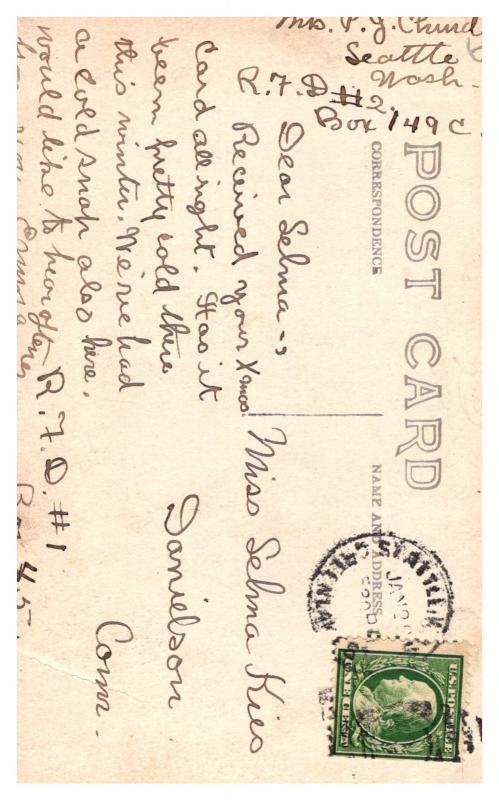 Mrs. P. J. Church
Seattle
Wash.
R.F.D. #2
Box 149 C.
POST CARD
CORRESPONDENCE
NAME AND ADDRESS
Dear Selma -
Received your Xmas
card allright. Has it
been pretty cold there
this winter. We've had
a cold snap also here.
would like to hear
Emma
Miss Selma Kies
Danielson
Conn.
R.F.D. #1
Box 45
SEATTLE
JAN
U.S. POSTAGE
ONE CENT